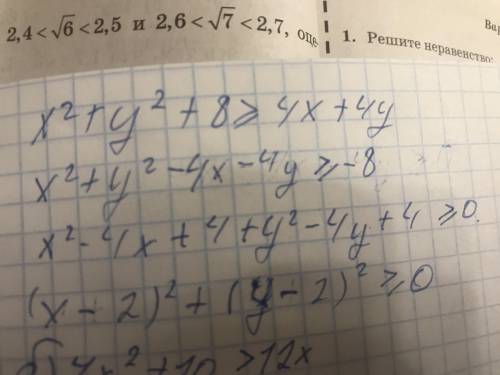 2,4<√6<2,5 и 2,6<√7<2,7, оце-
1. Решите неравенство:
x² + y² + 8 ⩾ 4x + 4y
x² + y² - 4x - 4y ⩾ -8
x² - 4x + 4 + y² - 4y + 4 ⩾ 0
(x - 2)² + (y - 2)² ⩾ 0
б) 4x² + 10 > 12x